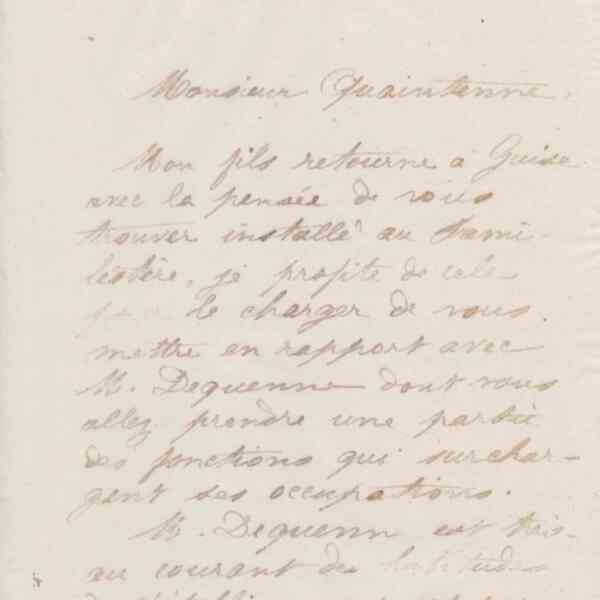 Monsieur Quaintenne,
Mon fils retourne à Guise
avec la pensée de vous
trouver installé au Fami-
listère, je profite de cela
pour le charger de vous
mettre en rapport avec
M. Dequenne dont vous
allez prendre une partie
des fonctions qui surchar-
gent ses occupations.
M. Dequenne est très-
au courant des habitudes